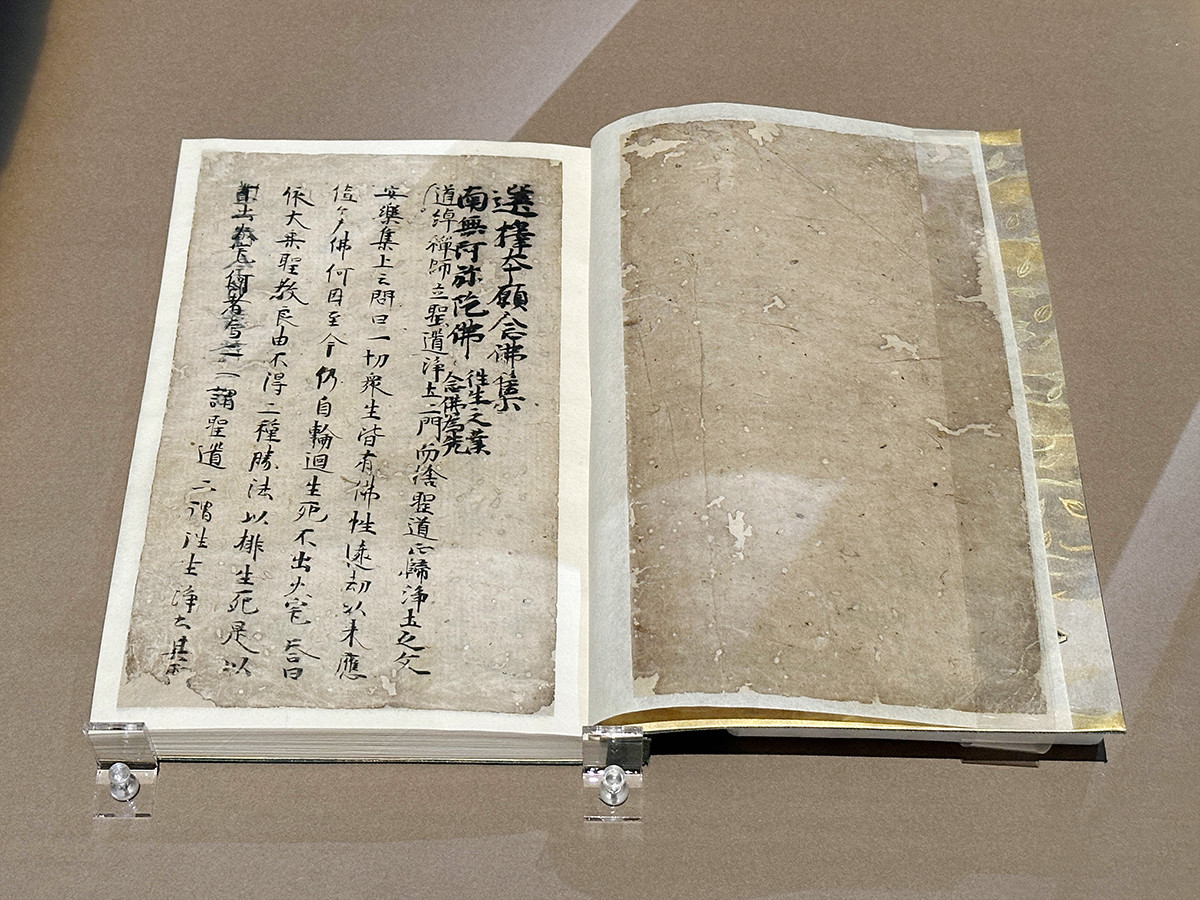 選擇本願念佛集
南無阿弥陀佛 往生之業
念佛為先
道綽禅師立聖道浄土二門而捨聖道正歸浄土之文
安樂集上云問曰一切衆生皆有佛性遠劫以来應
値多佛何因至今仍自輪迴生死不出火宅答曰
依大乗聖教良由不得二種勝法以排生死是以
何者為二一謂聖道二謂往生浄土